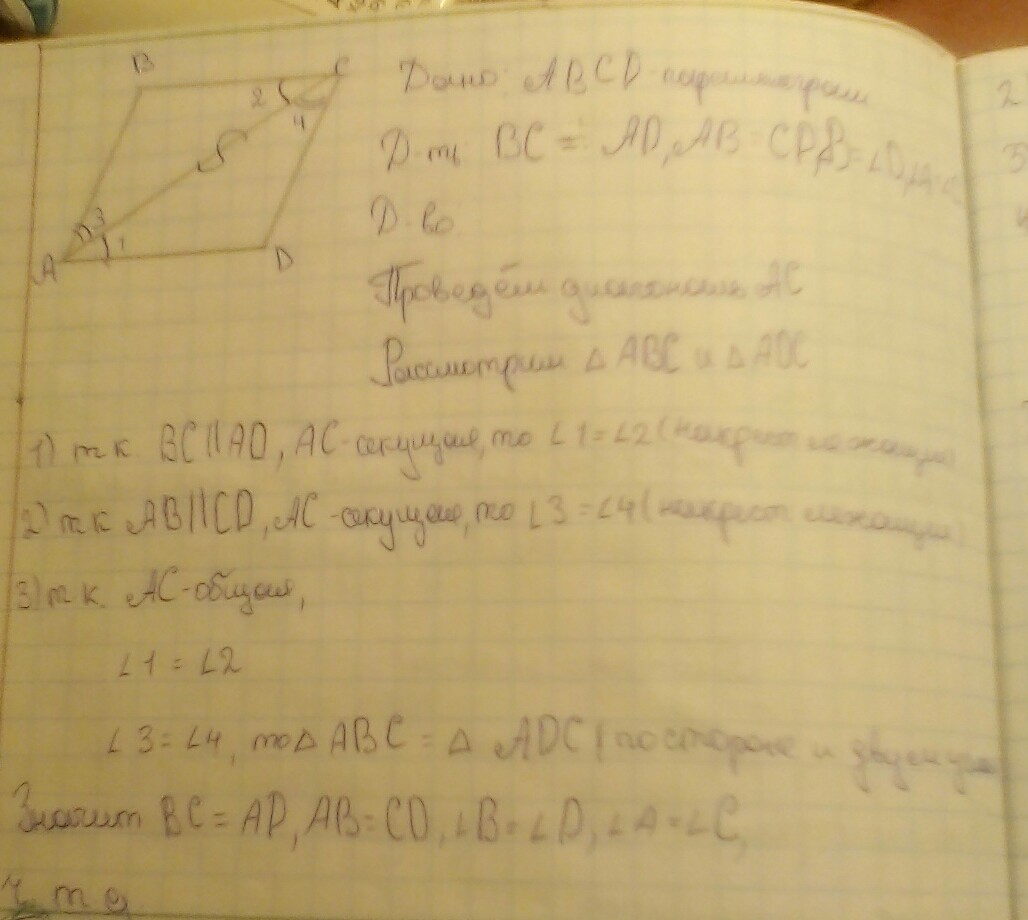 B
C
2
4
3
1
A
D
Дано: ABCD-параллограм
Д-ть BC = AD, AB = CD, ∠B=∠D, ∠A=∠C
Д-во
Проведём диагональ AC
Рассмотрим △ ABC и △ ADC
1) т к BC||AD, AC-секущая, то ∠1=∠2 (накрест лежащие)
2) т к AB||CD, AC-секущая, то ∠3=∠4 (накрест лежащие)
3) т к. AC-общая,
∠1=∠2
∠3=∠4, то △ ABC = △ ADC (по стороне и двум угла
Значит BC=AD, AB=CD, ∠B=∠D, ∠A=∠C,
ч т д
2